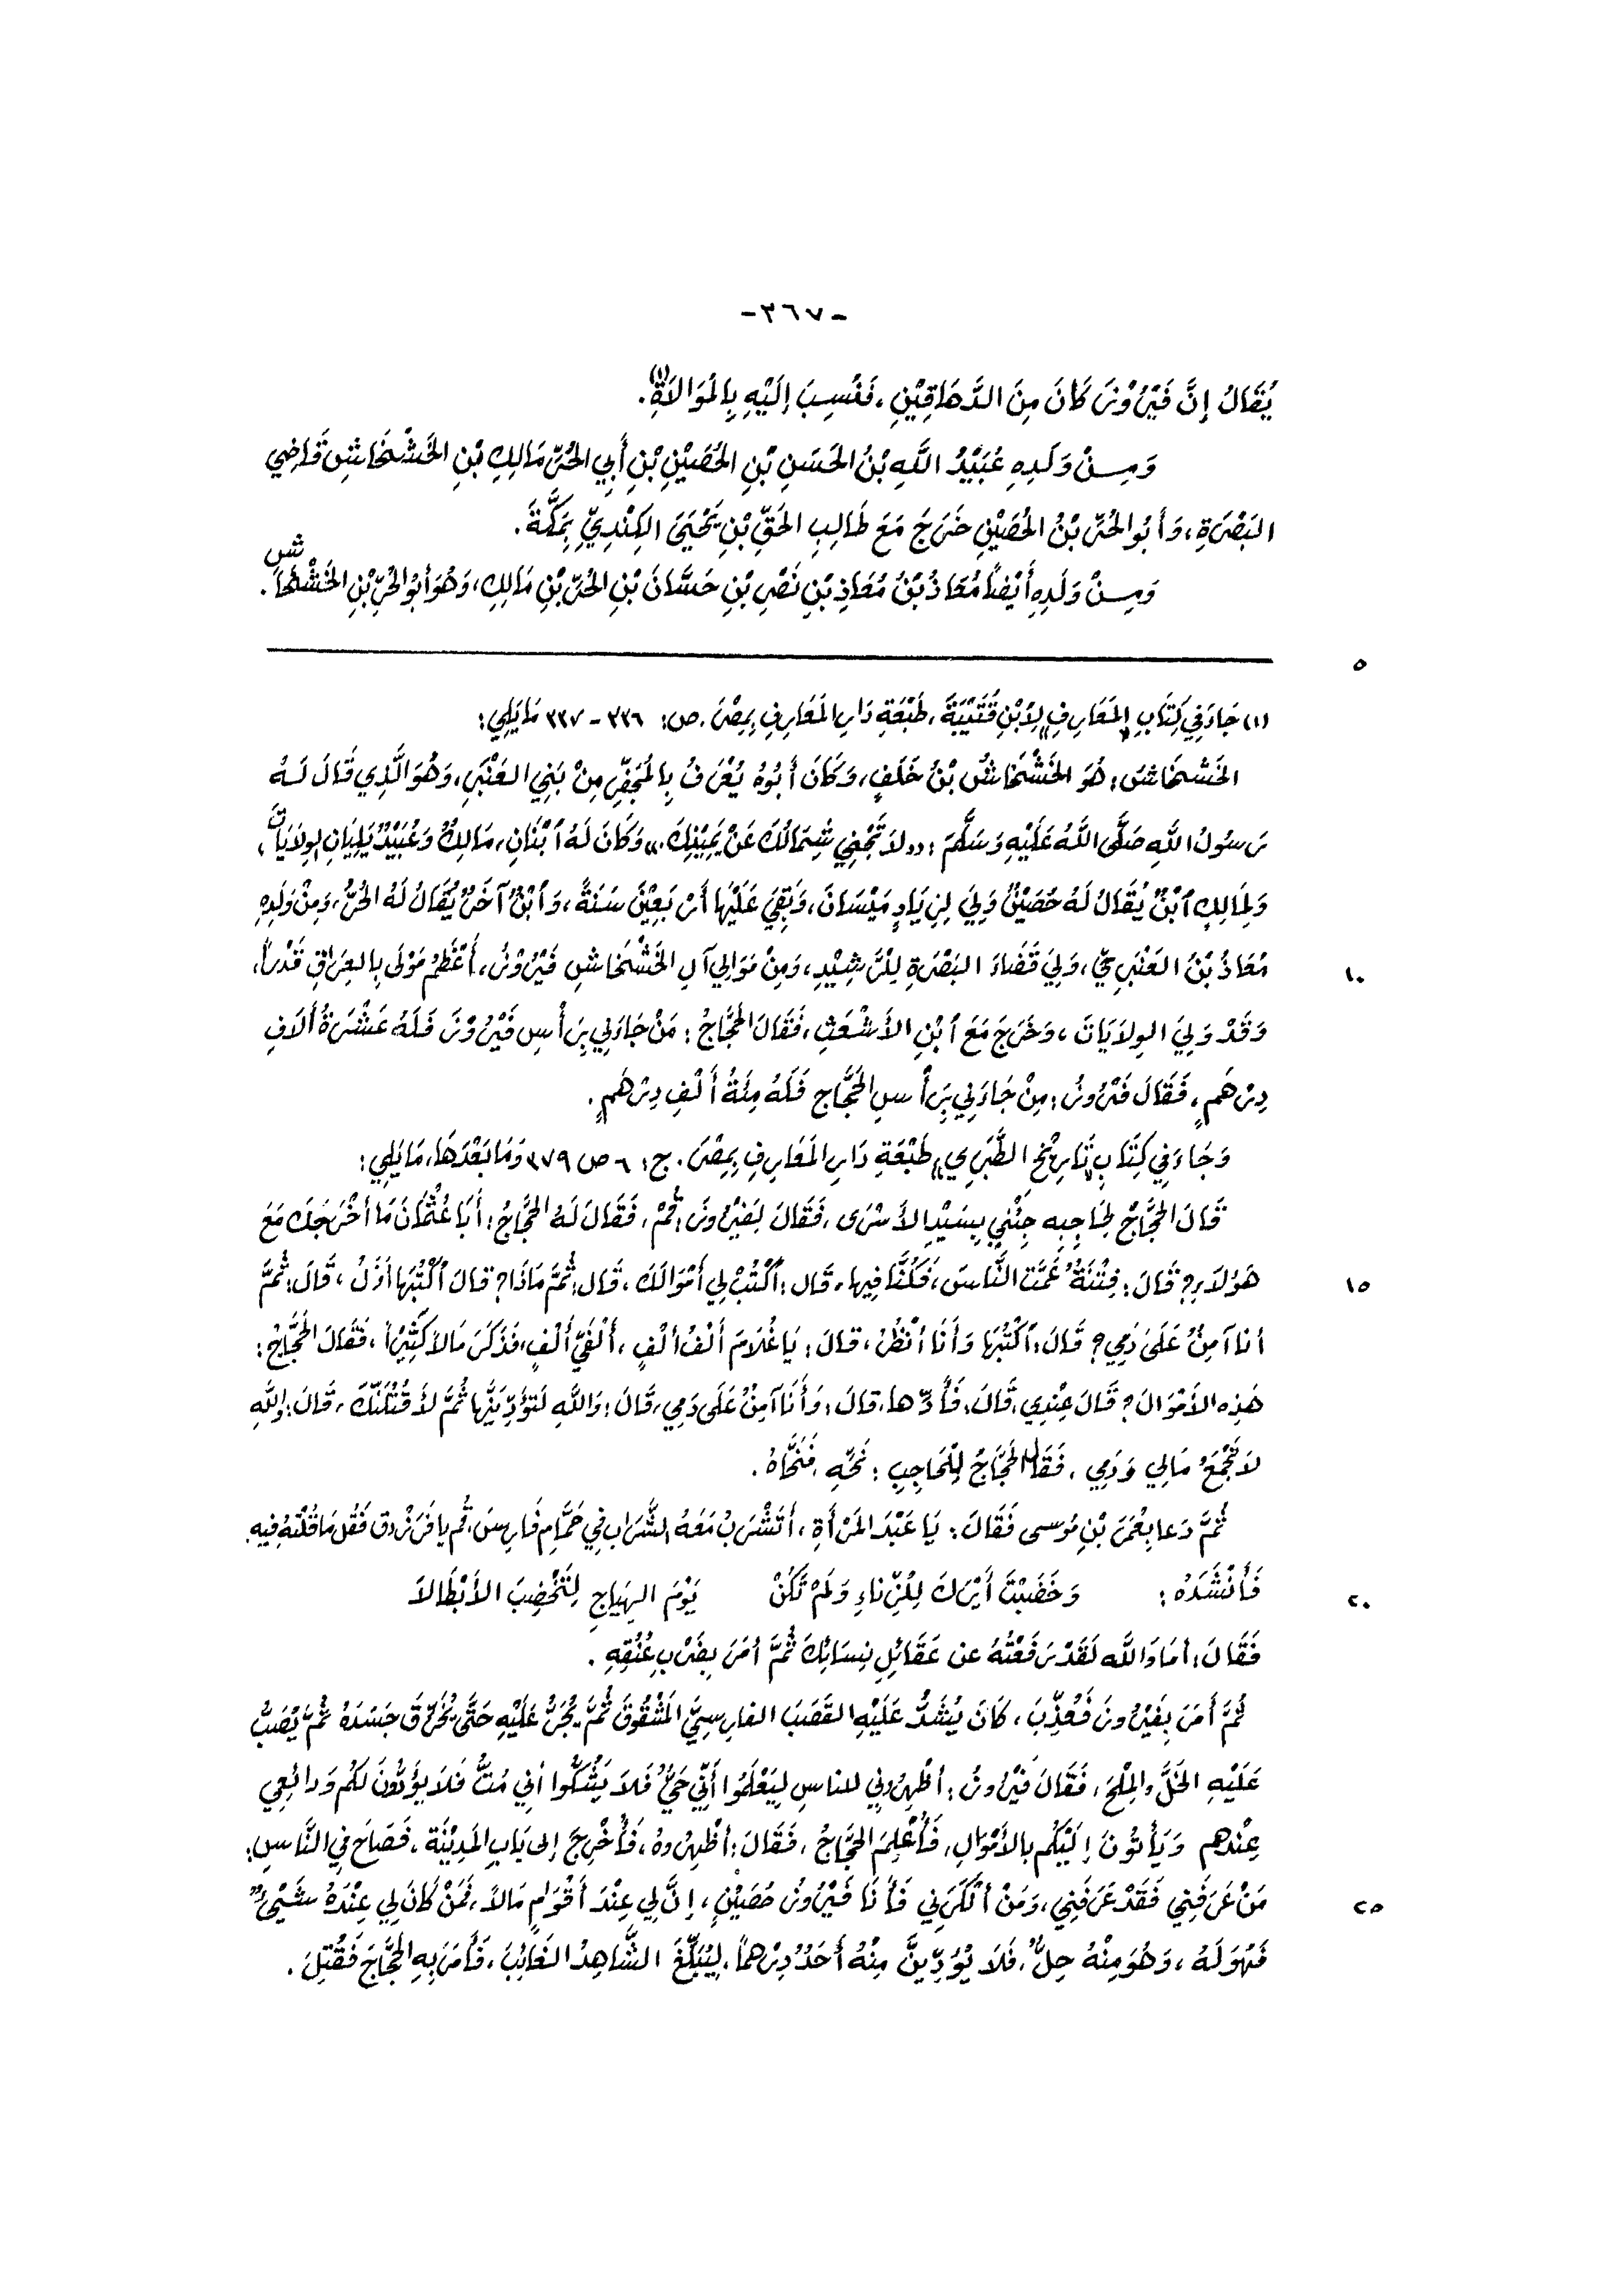 -٣٦٧-
يُقَالُ إِنَّ فَيْرُوْزَ كَانَ مِنَ الدَّهَاقِيْنِ، فَنُسِبَ إِلَيْهِ بِالمُوَالَاةِ(١).
وَمِنْ وَلَدِهِ عُبَيْدُ اللَّهِ بْنُ الحَسَنِ بْنِ الحُصَيْنِ بْنِ أَبِي الحُرِّ مَالِكِ بْنِ الخَشْخَاشِ قَاضِي
البَصْرَةِ، وَأَبُو الحُرِّ بْنُ الحُصَيْنِ خَرَجَ مَعَ طَالِبِ الحَقِّ بْنِ يَحْيَى الكِنْدِيِّ بِمَكَّةَ.
وَمِنْ وَلَدِهِ أَيْضاً مُعَاذُ بْنُ مُعَاذِ بْنِ نَصْرِ بْنِ حَسَّانَ بْنِ الحُرِّ بْنِ مَالِكِ، وَهُوَ أَبُو الحُرِّ بْنِ الخَشْخَاشِ.
٥
(١) جَاءَ فِي كِتَابِ «المَعَارِفِ» لِابْنِ قُتَيْبَةَ، طَبْعَةِ دَارِ المَعَارِفِ بِمِصْرَ. ص: ٣٣٦ - ٣٣٧ مَا يَلِي:
الخَشْخَاشُ: هُوَ الخَشْخَاشُ بْنُ خَلَفٍ، وَكَانَ أَبُوهُ يُعْرَفُ بِالمُجَفِّرِ مِنْ بَنِي العَنْبَرِ، وَهُوَ الَّذِي قَالَ لَهُ
رَسُولُ اللَّهِ صَلَّى اللَّهُ عَلَيْهِ وَسَلَّمَ: «لَا تَجْنِي شِمَالُكَ عَنْ يَمِيْنِكَ.» وَكَانَ لَهُ ابْنَانِ، مَالِكٌ وَعُبَيْدٌ يَلِيَانِ الوِلَايَاتِ،
وَلِمَالِكٍ ابْنٌ يُقَالُ لَهُ حُصَيْنٌ وَلِيَ لِزِيَادٍ مَيْسَانَ، وَبَقِيَ عَلَيْهَا أَرْبَعِيْنَ سَنَةً، وَابْنٌ آخَرُ يُقَالُ لَهُ الحُرُّ، وَمِنْ وَلَدِهِ
مُعَاذُ بْنُ العَنْبَرِيِّ، وَلِيَ قَضَاءَ البَصْرَةِ لِلرَّشِيْدِ، وَمِنْ مَوَالِي آلِ الخَشْخَاشِ فَيْرُوْزُ، أَعْظَمُ مَوْلَى بِالعِرَاقِ قَدْراً، ١٠
وَقَدْ وَلِيَ الوِلَايَاتَ، وَخَرَجَ مَعَ ابْنِ الأَشْعَثِ، فَقَالَ الحَجَّاجُ: مَنْ جَاءَنِي بِرَأْسِ فَيْرُوْزَ فَلَهُ عَشْرَةُ أَلَافِ
دِرْهَمٍ، فَقَالَ فَيْرُوزُ: مِنْ جَاءَنِي بِرَأْسِ الحَجَّاجِ فَلَهُ مِئَةُ أَلْفِ دِرْهَمٍ.
وَجَاءَ فِي كِتَابِ «تَارِيْخِ الطَّبَرِي» طَبْعَةِ دَارِ المَعَارِفِ بِمِصْرَ. ج: ٦ ص ٣٧٩ وَمَا بَعْدَهَا، مَا يَلِي:
قَالَ الحَجَّاجُ لِحَاجِبِهِ جِئْنِي بِسَيِّدِ الأَسْرَى، فَقَالَ لِفَيْرُوزَ: قُمْ، فَقَالَ لَهُ الحَجَّاجُ: أَبَا عُثْمَانَ مَا أَخْرَجَكَ مَعَ
هَؤُلَاءِ؟ قَالَ: فِتْنَةٌ عَمَّتِ النَّاسَ، فَكُنَّا فِيهَا، قَالَ: اكْتُبْ لِي أَمْوَالَكَ، قَالَ: ثُمَّ مَاذَا؟ قَالَ اكْتُبْهَا أَوَّلُ، قَالَ: ثُمَّ ١٥
أنا آمِنٌ عَلَى دَمِي؟ قَالَ: اكْتُبْهَا وَأَنَا أَنْظُرُ، قالَ: يَا غُلَامَ أَلْفُ أَلْفٍ، أَلْفَيْ أَلْفٍ، فَذَكَرَ مَالاً كَثِيْراً، فَقَالَ الحَجَّاجُ:
هَذِهِ الأَمْوَالَ؟ قَالَ عِنْدِي، قَالَ: فَأَدِّها، قالَ: وَأَنَا آمِنٌ عَلَى دَمِي، قَالَ: وَاللَّهِ لَتُؤَدِّيَنَّهَا ثُمَّ لَأَقْتُلَنَّكَ، قَالَ: وَاللَّهِ
لَا تَجْمَعُ مَالِي وَدَمِي، فَقَالَ الحَجَّاجُ لِلْحَاجِبِ: نَحِّهِ، فَنَحَّاهُ.
ثُمَّ دَعا بِعُمَرَ بْنِ مُوسى فَقَالَ: يَا عَبْدَ المَرْأَةِ، أَتَشْرَبُ مَعَهُ الشَّرَابَ فِي حَمَّامِ فَارِسَ، قُم يا فَرَزْدَق فَقُل مَا قُلْتَهُ فِيهِ.
فَأَنْشَدَهُ: وَخَضَبْتَ أَيْرَكَ لِلزِّناءِ وَلَمْ تَكُنْ يَوْمَ الهِيَاجِ لِتَخْضِبَ الأَبْطَالَا ٢٠
فَقَالَ: أَمَا وَاللَّهِ لَقَدْ رَفَعْتُهُ عن عَقَائِلِ نِسَائِكَ ثُمَّ أَمَرَ بِضَرْبِ عُنُقِهِ.
ثُمَّ أَمَرَ بِفَيْرُوزَ فَعُذِّبَ، كَانَ يُشَدُّ عَلَيْهِ القَصَبَ الفارِسِيَّ المَشْقُوقَ ثُمَّ يُجَرُّ عَلَيْهِ حَتَّى يُخَرِّقَ جَسَدَهُ ثُمَّ يُصَبُّ
عَلَيْهِ الخَلُّ وَالمِلْحَ، فَقَالَ فَيْرُوزُ: أَظْهِرُونِي للناسِ لِيَعْلَمُوا أَنِّي حَيٌّ فَلَا يَشُكُّوا أني مُتُّ فَلَا يؤدُّونَ لَكُم وَدائِعِي
عِنْدهم وَيَأْتُونَ إِلَيْكُم بالأَمْوَالِ، فَأُعْلِمَ الحَجَّاجُ، فَقَالَ: أَظْهِرُوهُ، فَأُخْرِجَ إِلى بَابِ المَدِيْنَةِ، فَصَاحَ فِي النَّاسِ:
مَنْ عَرَفَنِي فَقَدْ عَرَفَنِي، وَمَنْ أَنْكَرَنِي فَأَنَا فَيْرُوزُ حُصَيْنٍ، إِنَّ لِي عِنْدَ أَقْوَامٍ مَالاً، فَمَنْ كَانَ لِي عِنْدَهُ شَيْءٌ ٢٥
فَهُوَ لَهُ، وَهُوَ مِنْهُ حِلٌّ، فَلَا يُؤَدِّيَنَّ مِنْهُ أَحَدٌ دِرْهماً، لِيُبَلِّغَ الشَّاهِدُ الغَائِبَ، فَأَمَرَ بِهِ الحَجَّاجَ فَقُتِلَ.